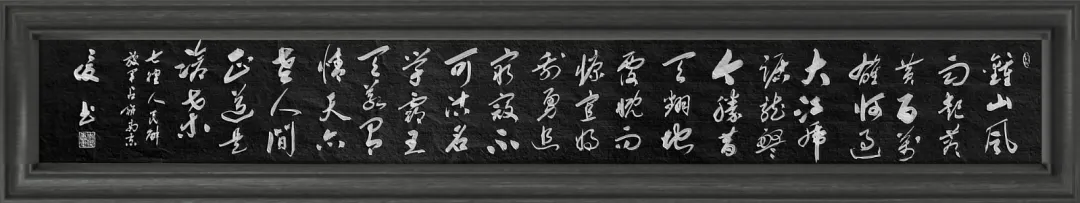 鍾山風
雨起蒼
黄百萬
雄师過
大江虎
踞龍盤
今勝昔
天翻地
覆慨而
慷宜将
剩勇追
窮寇不
可沽名
学霸王
天若有
情天亦
老人間
正道是
滄桑
七律人民解
放军占領南京
书